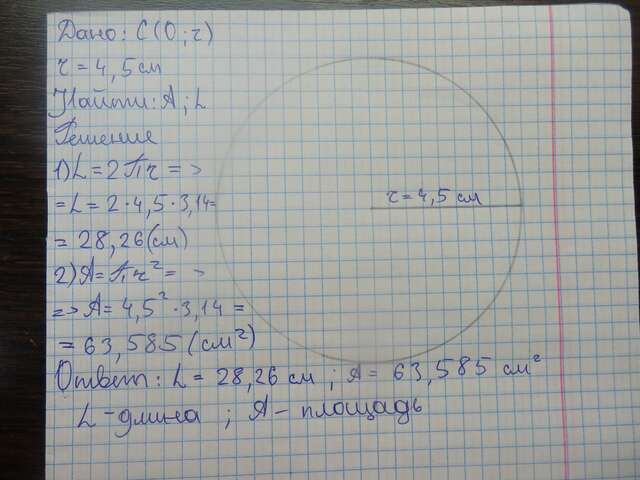 Дано: C(O; r)
r = 4,5 см
Найти: A; L
Решение
1) L = 2πr = >
r = 4,5 см
= L = 2·4,5·3,14=
= 28,26(см)
2) A = πr² = >
=> A = 4,5²·3,14 =
= 63,585 (см²)
Ответ: L = 28,26 см ; A = 63,585 см²
L - длина ; A - площадь